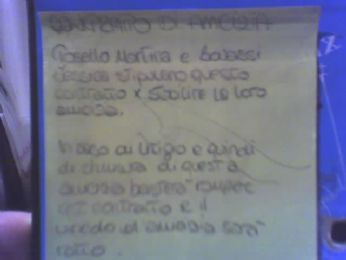 CONTRATTO DI AMICIZIA
Tosello Martina e
Jessica stipulano questo
contratto x sancire la loro
amicizia.
In caso di litigio e quindi
di chiusura di questa
amicizia basterà rompere
il contratto e il
vincolo di amicizia sarà
rotto.